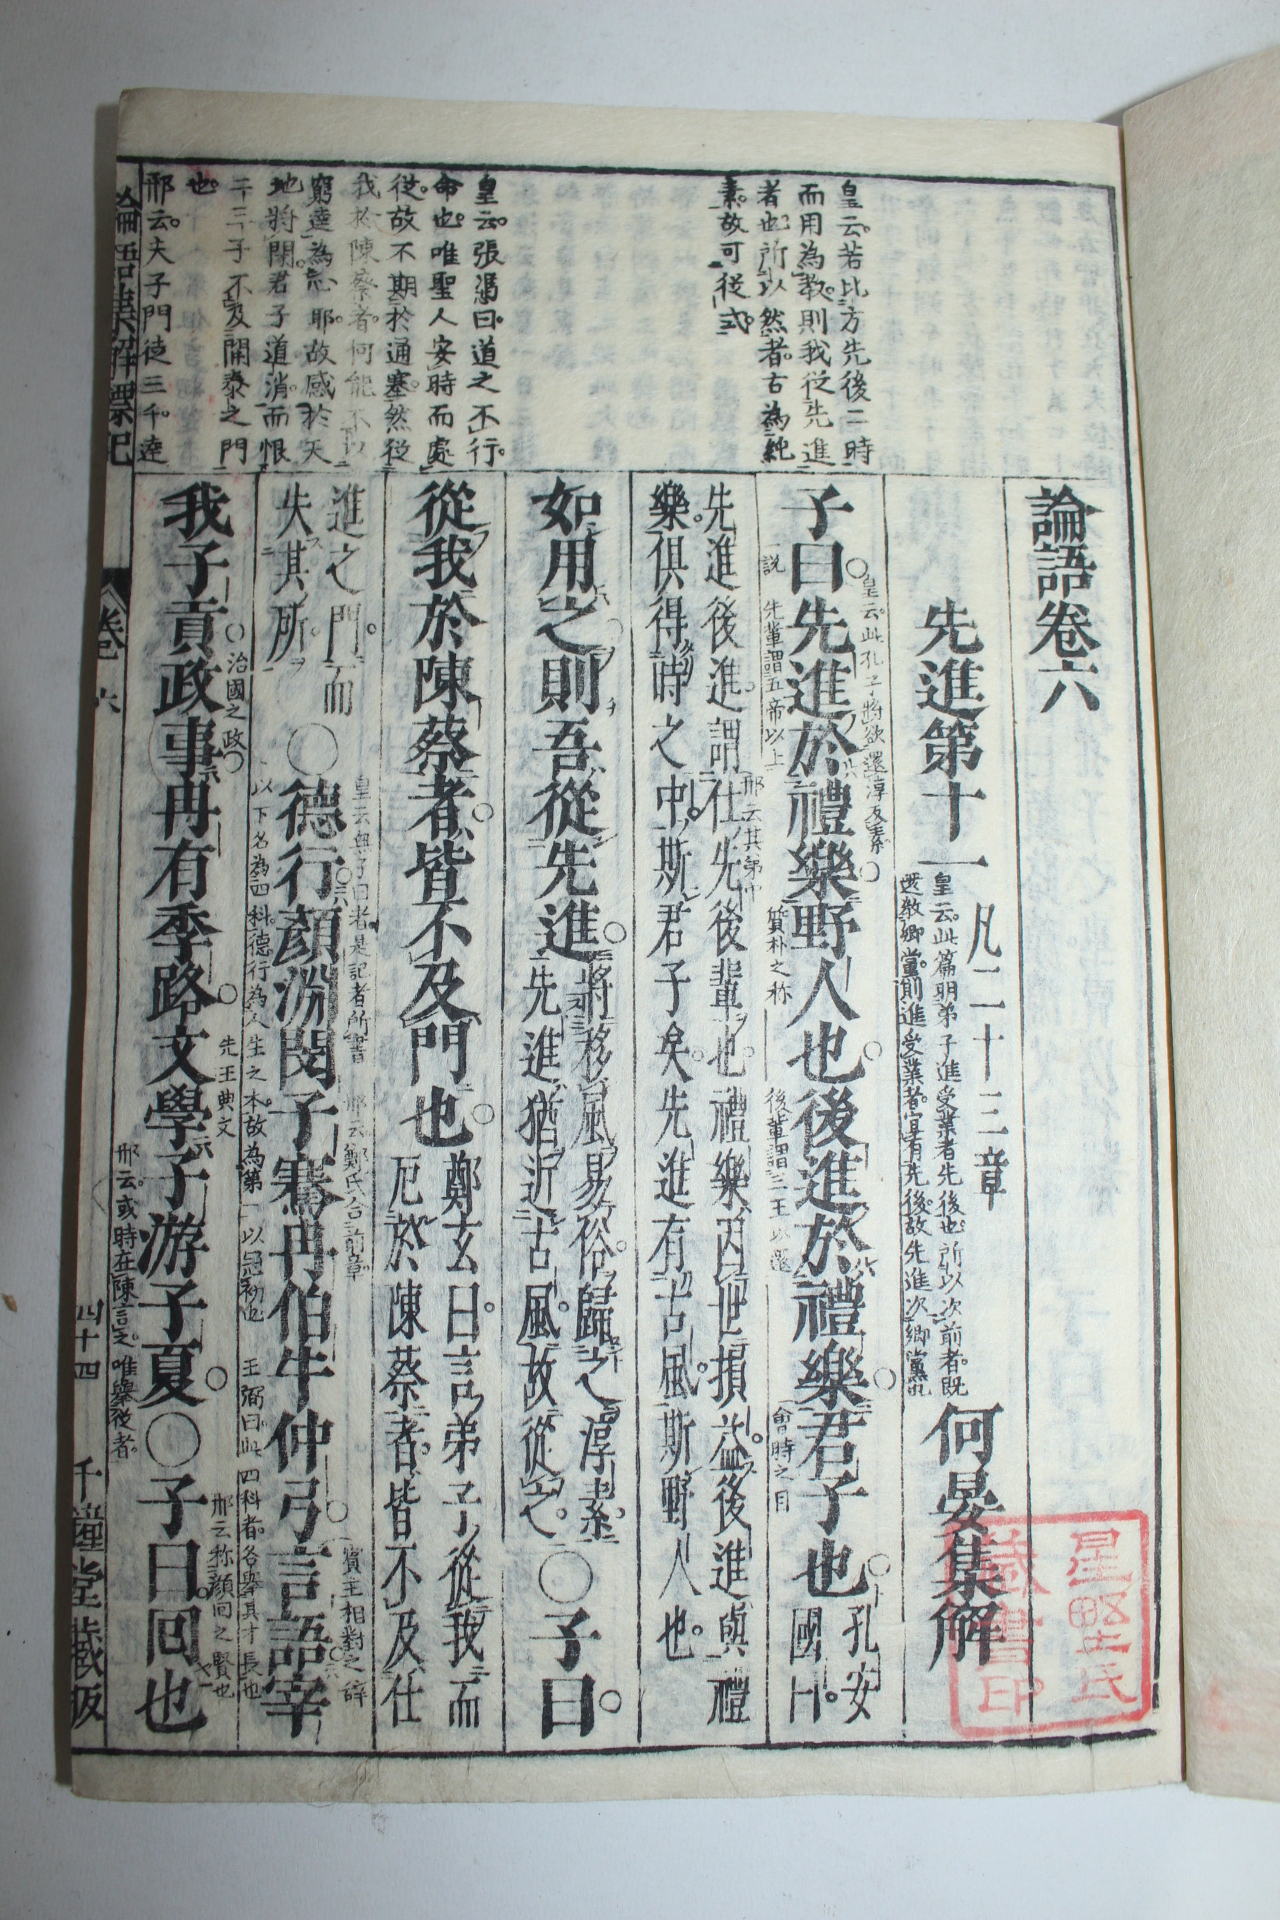 論語卷六
先進第十一
凡二十三章
皇云。此篇明弟子進受業者先後也。所以次前者。既
還教鄉黨。則進受業者。宜有先後。故先進次鄉黨也
何晏集解
皇云。若比方先後二時
而用為教。則我從先進
者也。所以然者。古為純
素。故可從式。
子曰先進於禮樂野人也後進於禮樂君子也
皇云。此孔子將欲還淳反素
一說 先輩謂五帝以上
質朴之称
後輩謂三王以還
會時之目
孔安
國曰。
先進後進。謂仕先後輩也。禮樂因世損益。後進與禮
樂。俱得時之中。斯君子矣。先進有古風。斯野人也。
邢云其第中
如用之則吾從先進
將移風易俗。歸之淳素。
先進猶近古風。故從之。
○子曰
皇云。張馮曰。道之不行。
命也。唯聖人安時而處
從。故不期於通塞。然從
我於陳蔡者。何能不以
窮達為心耶。故感於天
地將閉。君子道消。而恨
二三子不及開泰之門
也。
從我於陳蔡者皆不及門也
鄭玄曰。言弟子從我而
厄於陳蔡者。皆不及仕
進之門。而
失其所。
○德行顏淵閔子騫冉伯牛仲弓言語宰
皇云無子曰者是記者所書
邢云鄭氏合前章
賓主相對之辞
以下名為四科。德行為人生之本。故為第一以冠初也
王弼曰此四科者。各舉其才長也
我子貢政事冉有季路文學子游子夏
治國之政
先王典文
○子曰回也
邢云称顏回之賢也
邢云。夫子門徒三千。達
邢云。或時在陳言之。唯舉從者。
論語集解標記
卷六
四十四
千鐘堂藏版
藏書印